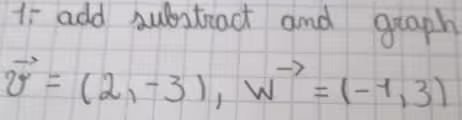 1.- add substract and graph
v⃗ = (2, -3), w⃗ = (-1, 3)